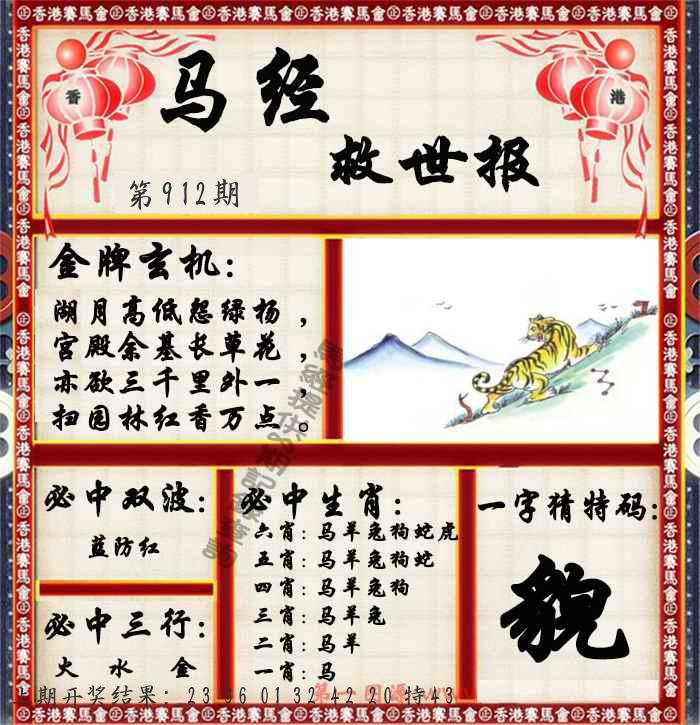 香港賽馬會
香
港
马经
救世报
第912期
金牌玄机：
湖月高低怨绿杨，
宫殿余基长草花，
亦欲三千里外一，
扫园林红香万点。
必中双波：
蓝防红
必中三行：
火 水 金
必中生肖：
六肖：马羊兔狗蛇虎
五肖：马羊兔狗蛇
四肖：马羊兔狗
三肖：马羊兔
二肖：马羊
一肖：马
一字猜特码：
貌
期开奖结果：23 36 01 32 42 20 特43